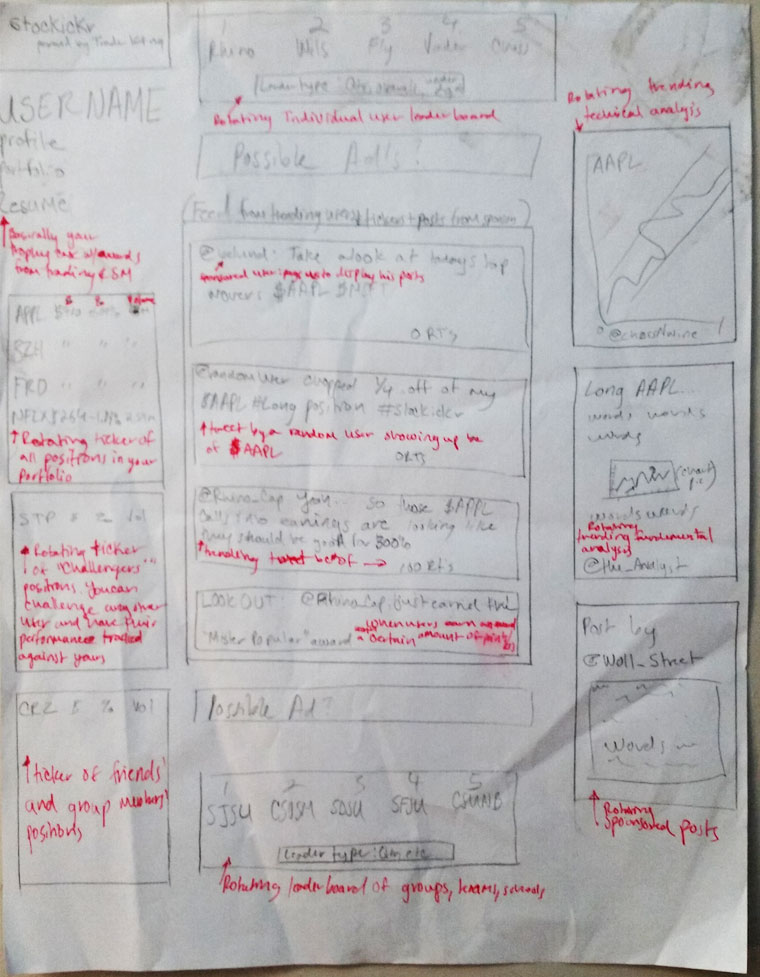 Stockickr
powered by Trader
USERNAME
profile
portfolio
Resume
Basically your
trophy box w/awards
from trading & SM
$ % Volume
AAPL
SZH " " "
FRD " " "
NFLX $264
Rotating ticker of
all positions in your
portfolio
STP $ % Vol
Rotating ticker
of "Challengers'"
positions. You can
challenge any other
user and have their
performance tracked
against yours
CRZ $ % Vol
ticker of friends'
and group members'
positions
1 2 3 4 5
Rhino Wils Fly Vader
Leader type:
Rotating Individual user leader board
Possible Ad's?
(Feed from trending users, tickers + posts from sponsors)
Take a look at todays top
sponsored user pays us to display his posts
movers $AAPL
0 RTs
@randomuser chopped 1/4 off of my
$AAPL #Long position #Stockickr
tweet by a random user showing up bc
of $AAPL
0 RTs
@Rhino_Cap Yeah... so those $AAPL
calls into earnings are looking like
they should be good for 300%
trending bc of
100 RTs
LOOK OUT: @Rhino_Cap just earned the
"Mister Popular" award
when users earn
certain amount of points
Possible Ad?
1 2 3 4 5
SJSU CSUSM SDSU SFSU CSUMB
Leader type:
Rotating leader board of groups, teams, schools
Rotating trending
technical analysis
AAPL
Long AAPL...
words words
words
(chart
pic)
words words
Rotating
trending fundamental
analysis
@the_Analyst
Post by
@Wall_Street
Words
Rotating
sponsored posts